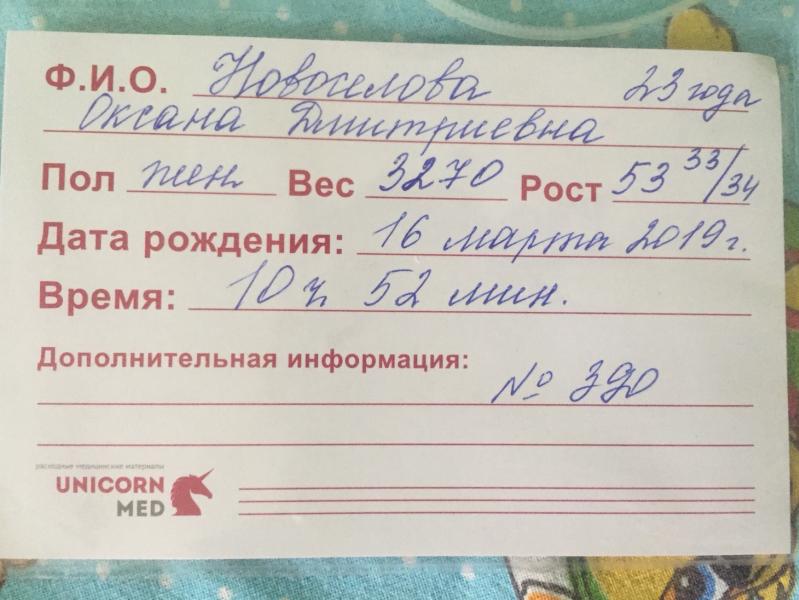 Ф.И.О. Новоселова 23 года
Оксана Дмитриевна
Пол жен Вес 3270 Рост 53 33/34
Дата рождения: 16 марта 2019 г.
Время: 10 ч 52 мин.
Дополнительная информация:
№ 390
расходные медицинские материалы
UNICORN
MED